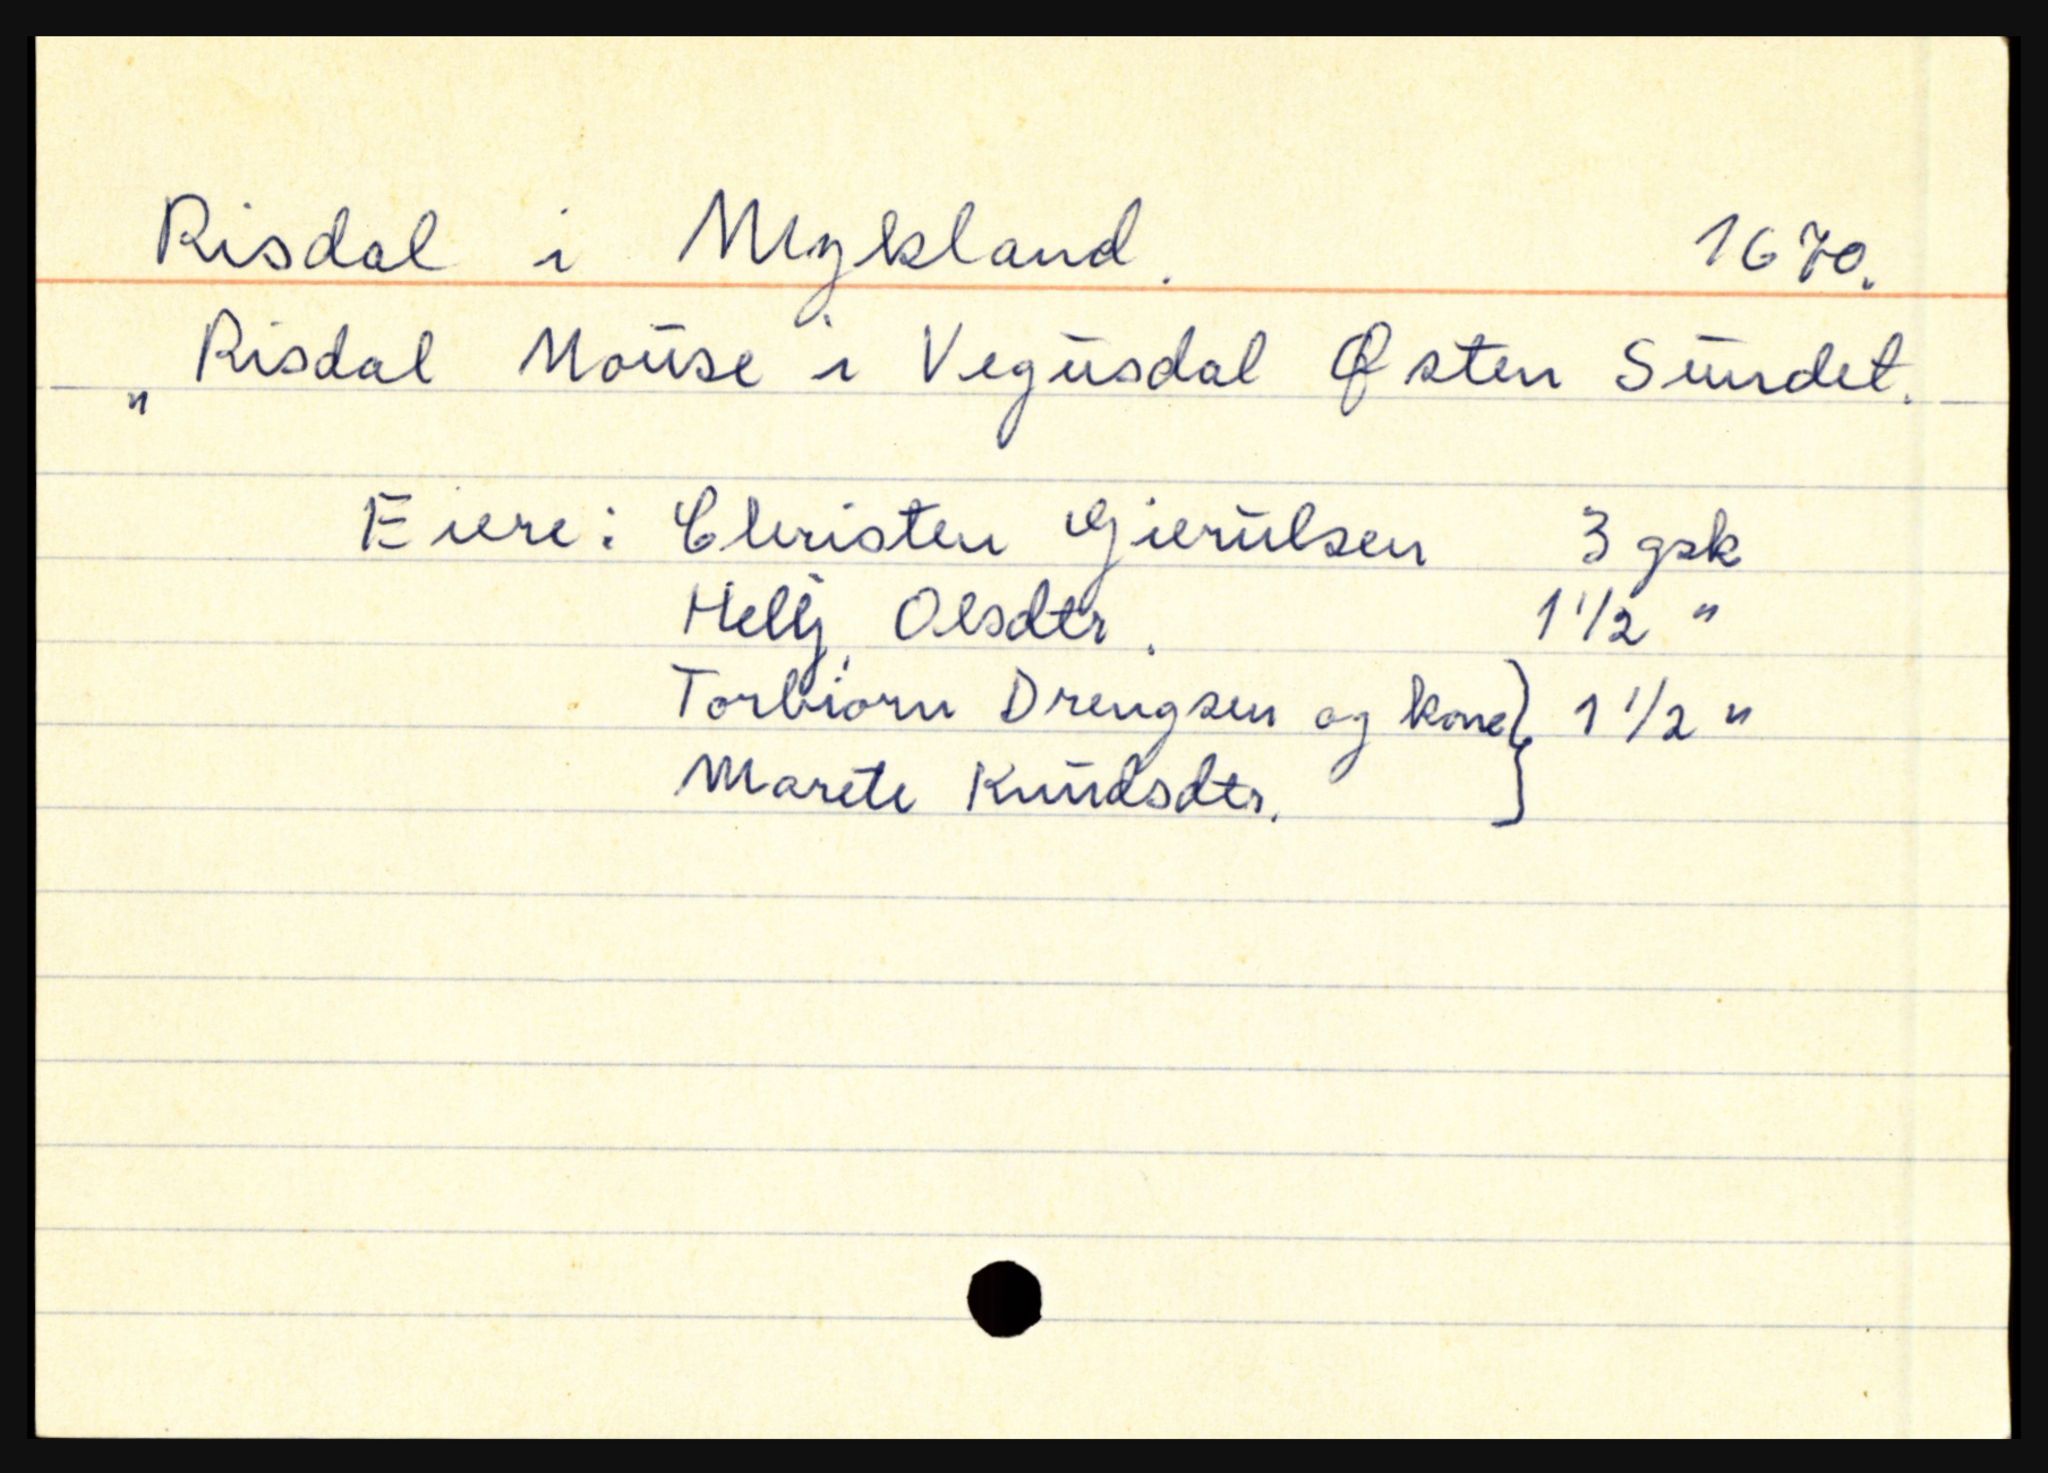 Risdal i Mykland. 1670.
„ Risdal Mouse i Vegusdal Østen Sundet.
Eiere: Christen Gierulsen 3 gsk
Hellj Olsdtr. 1 1/2 "
Torbiørn Drengsen og kone } 1 1/2 "
Marete Knudsdtr.